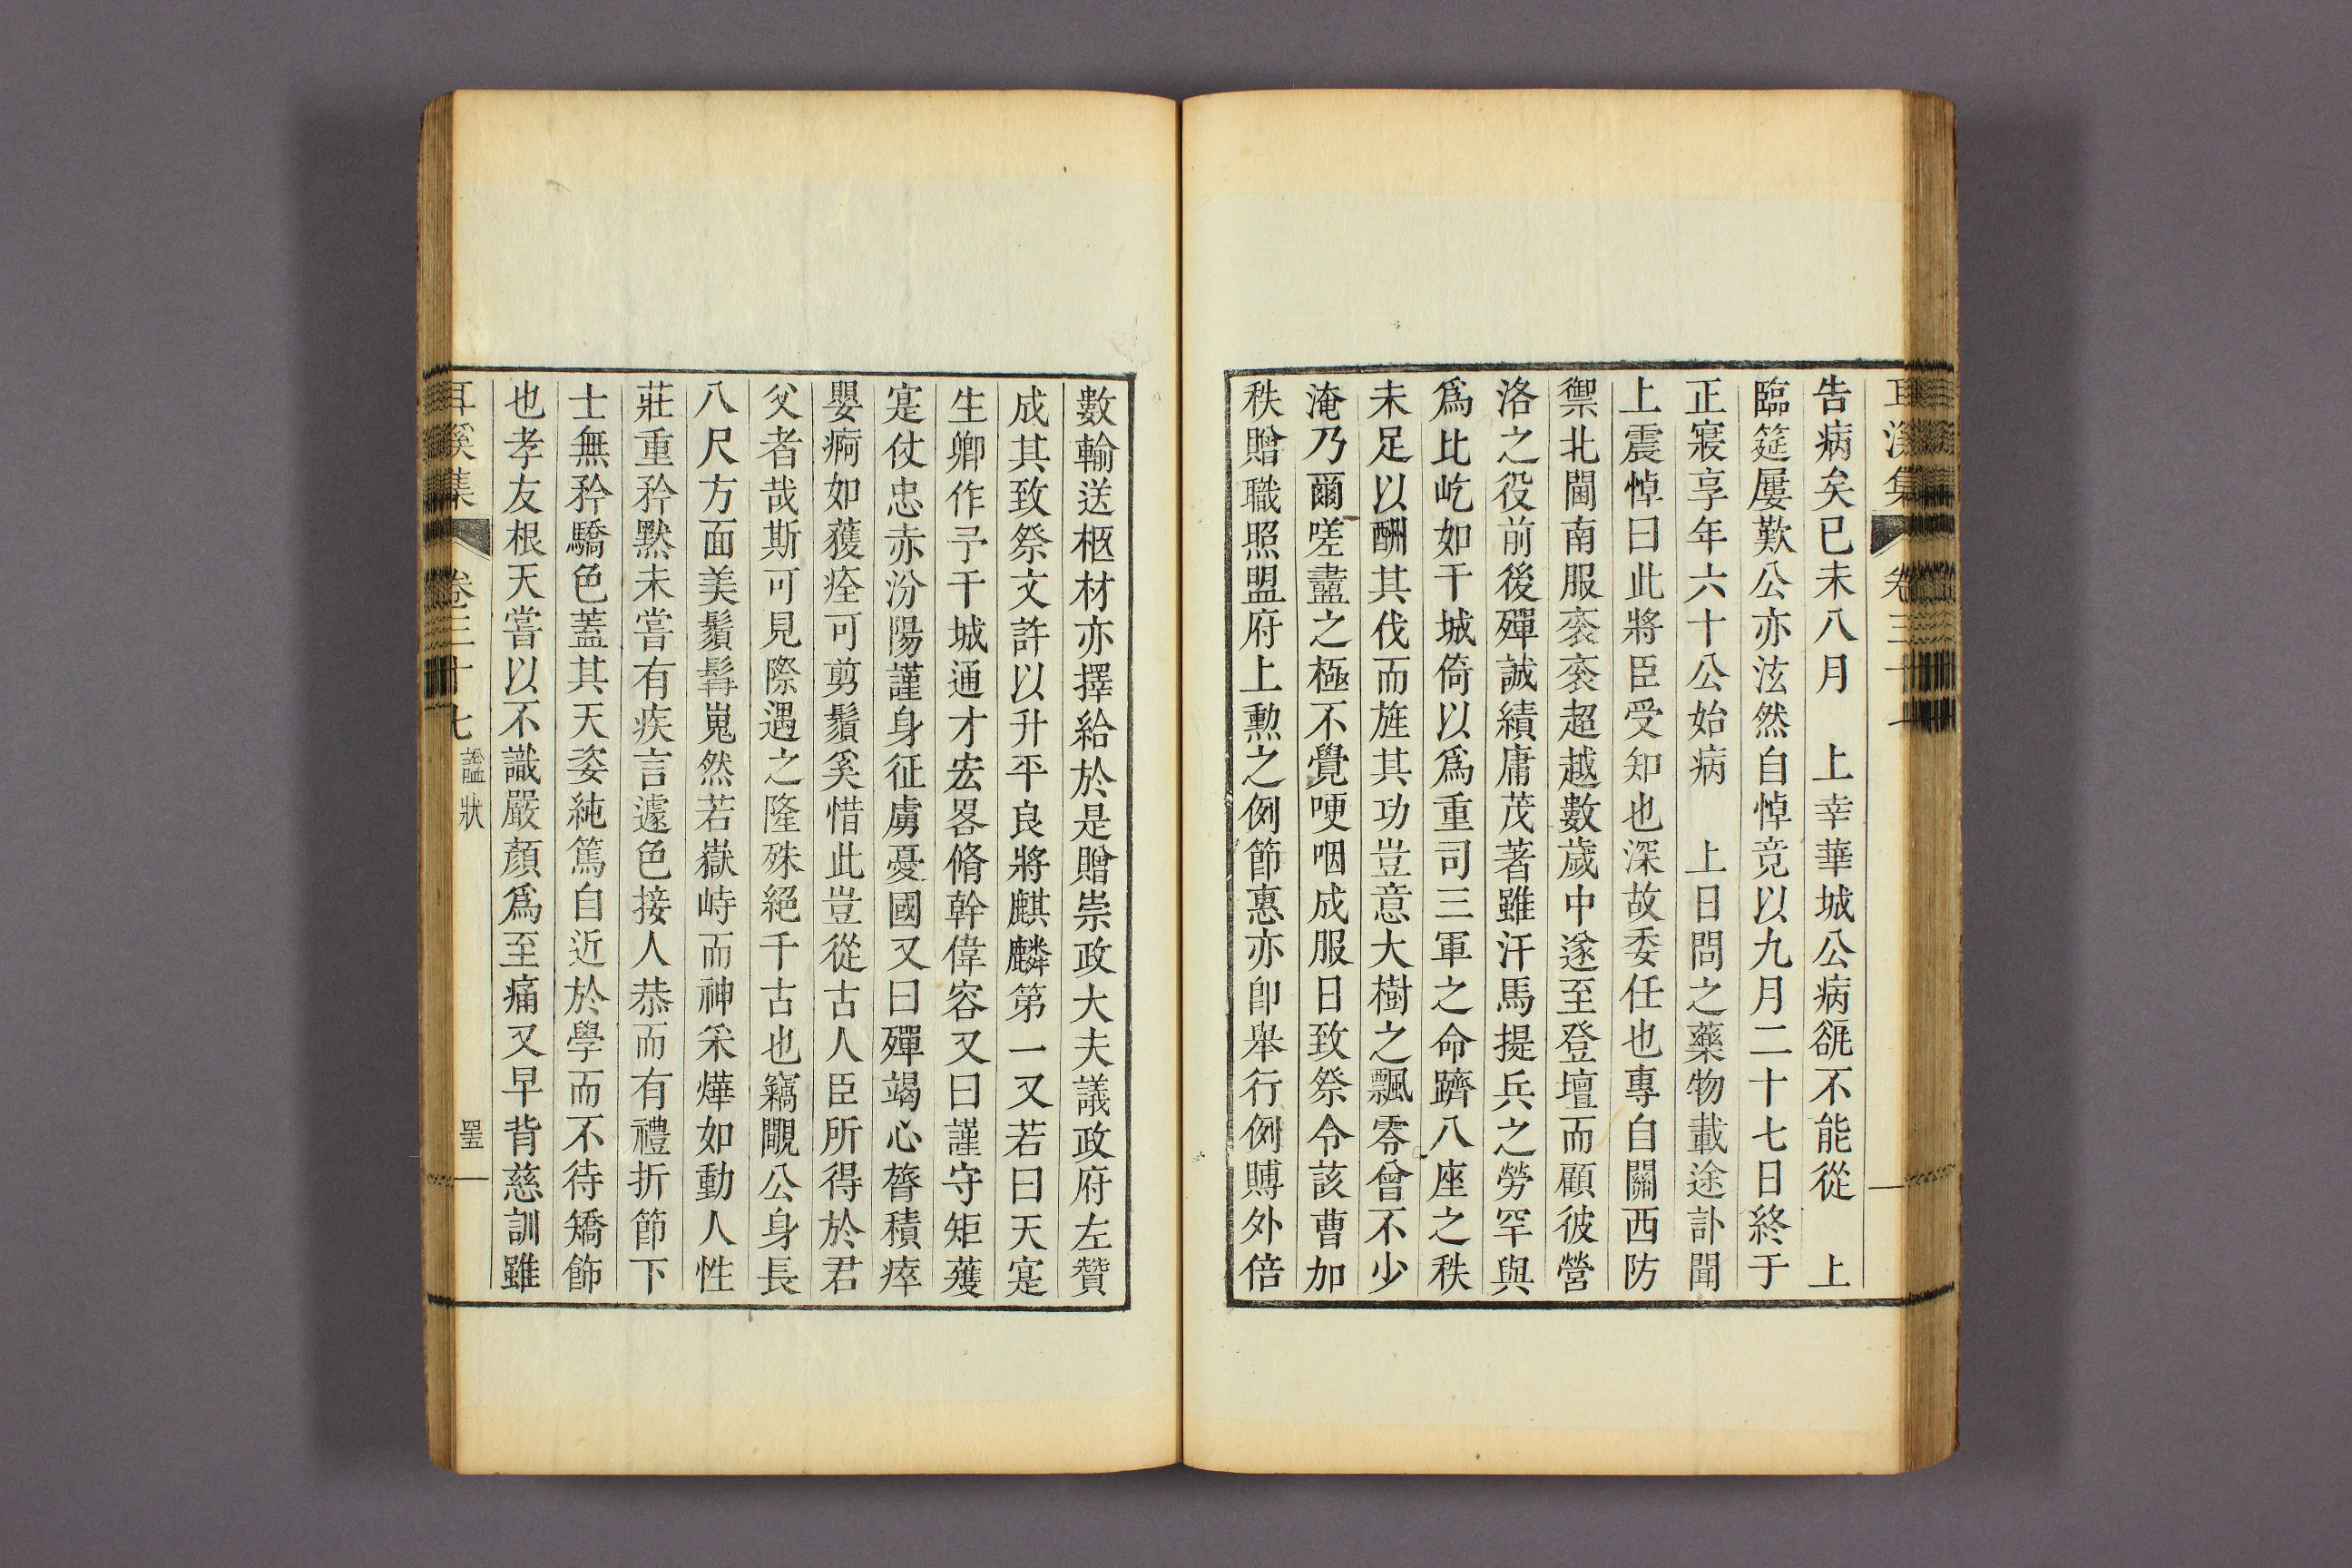 告病矣已未八月　上幸華城公病㼌不能從　上
臨筵屢歎公亦泫然自悼竟以九月二十七日終于
正寢享年六十公始病　上日問之藥物載途訃聞
上震悼曰此將臣受知也深故委任也專自關西防
禦北閫南服袞袞超越數歲中遂至登壇而顧彼營
洛之役前後殫誠績庸茂著雖汗馬提兵之勞罕與
爲比屹如干城倚以爲重司三軍之命躋八座之秩
未足以酬其伐而旌其功豈意大樹之飄零曾不少
淹乃爾嗟衋之極不覺哽咽成服日致祭令該曹加
秩贈職照盟府上勳之例節惠亦卽舉行例賻外倍
數輸送柩材亦擇給於是贈崇政大夫議政府左贊
成其致祭文許以升平良將麒麟第一又若曰天寔
生卿作予干城通才宏畧脩幹偉容又曰謹守矩蒦
寔仗忠赤汾陽謹身征虜憂國又曰殫竭心膂積瘁
嬰痾如獲痊可剪鬚奚惜此豈從古人臣所得於君
父者哉斯可見際遇之隆殊絕千古也竊覵公身長
八尺方面美鬚髯嵬然若嶽峙而神采燁如動人性
莊重矜默未嘗有疾言遽色接人恭而有禮折節下
士無矜驕色蓋其天姿純篤自近於學而不待矯飾
也孝友根天嘗以不識嚴顏爲至痛又早背慈訓雖
耳溪集
卷三十七
諡狀